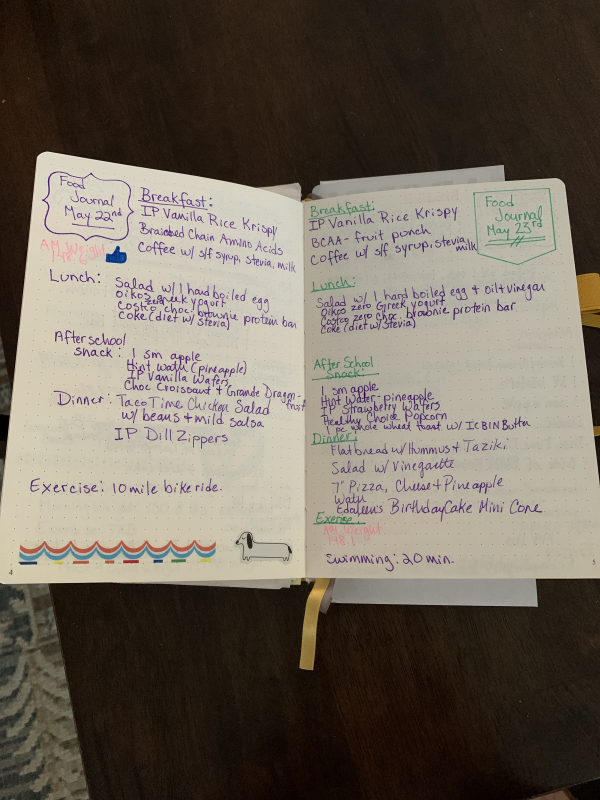 Food
Journal
May 22nd
AM Weight
Breakfast:
IP Vanilla Rice Krispy
Brainbed Chain Amino Acids
Coffee w/ s/f syrup, stevia, milk
Lunch:
Salad w/ 1 hard boiled egg
Oikos Greek yogurt
Costco choc. brownie protein bar
Coke (diet w/ Stevia)
Afterschool
Snack: 1 sm apple
Hint water (pineapple)
IP Vanilla Wafers
Choc Croissant & Grande Dragon-
fruit
Dinner: Taco Time Chicken Salad
w/ beans & mild salsa
IP Dill Zippers
Exercise: 10 mile bike ride.
4
Food
Journal
May 23rd
Breakfast:
IP Vanilla Rice Krispy
BCAA - fruit punch
Coffee w/ s/f syrup, stevia,
milk
Lunch:
Salad w/ 1 hard boiled egg & oil + vinegar
Oikos zero Greek yogurt
Costco zero choc. brownie protein bar
Coke (diet w/ Stevia)
After School
Snack:
1 sm apple
Hint Water - pineapple
IP Strawberry Wafers
Healthy Choice Popcorn
1 pc whole wheat toast w/ ICBIN Butter
Dinner:
Flatbread w/ Hummus & Taziki
Salad w/ Vinegarette
7" Pizza, Cheese & Pineapple
Water
Edaleen's Birthday Cake Mini Cone
AM Weight
148.1
Swimming: 20 min.
5